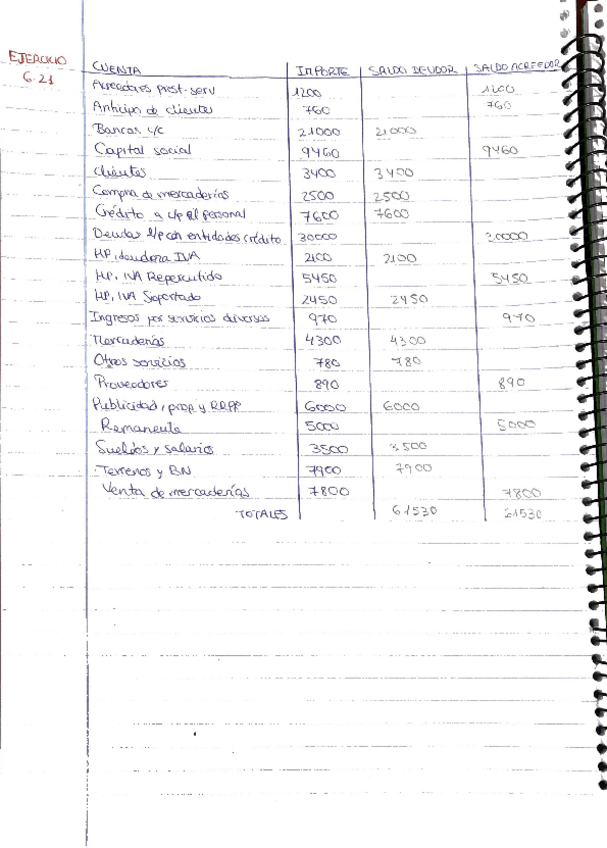 EJERCICIO
6.21
CUENTA IMPORTE SALDO DEUDOR SALDO ACREEDOR
Acreedores prest-serv 1200 1200
Anticipo de clientes 760 760
Bancos c/c 21000 21000
Capital social 9460 9460
Clientes 3400 3400
Compra de mercaderías 2500 2500
Crédito a c/p al personal 7600 7600
Deudas l/p con entidades crédito 30000 30000
HP, deudora IVA 2100 2100
HP, IVA Repercutido 5450 5450
HP, IVA Soportado 2450 2450
Ingresos por servicios diversos 970 970
Mercaderías 4300 4300
Otros servicios 780 780
Proveedores 890 890
Publicidad, prop y RRPP 6000 6000
Remanente 5000 5000
Sueldos y salarios 3500 3500
Terrenos y BN 7900 7900
Venta de mercaderías 7800 7800
TOTALES 61530 61530